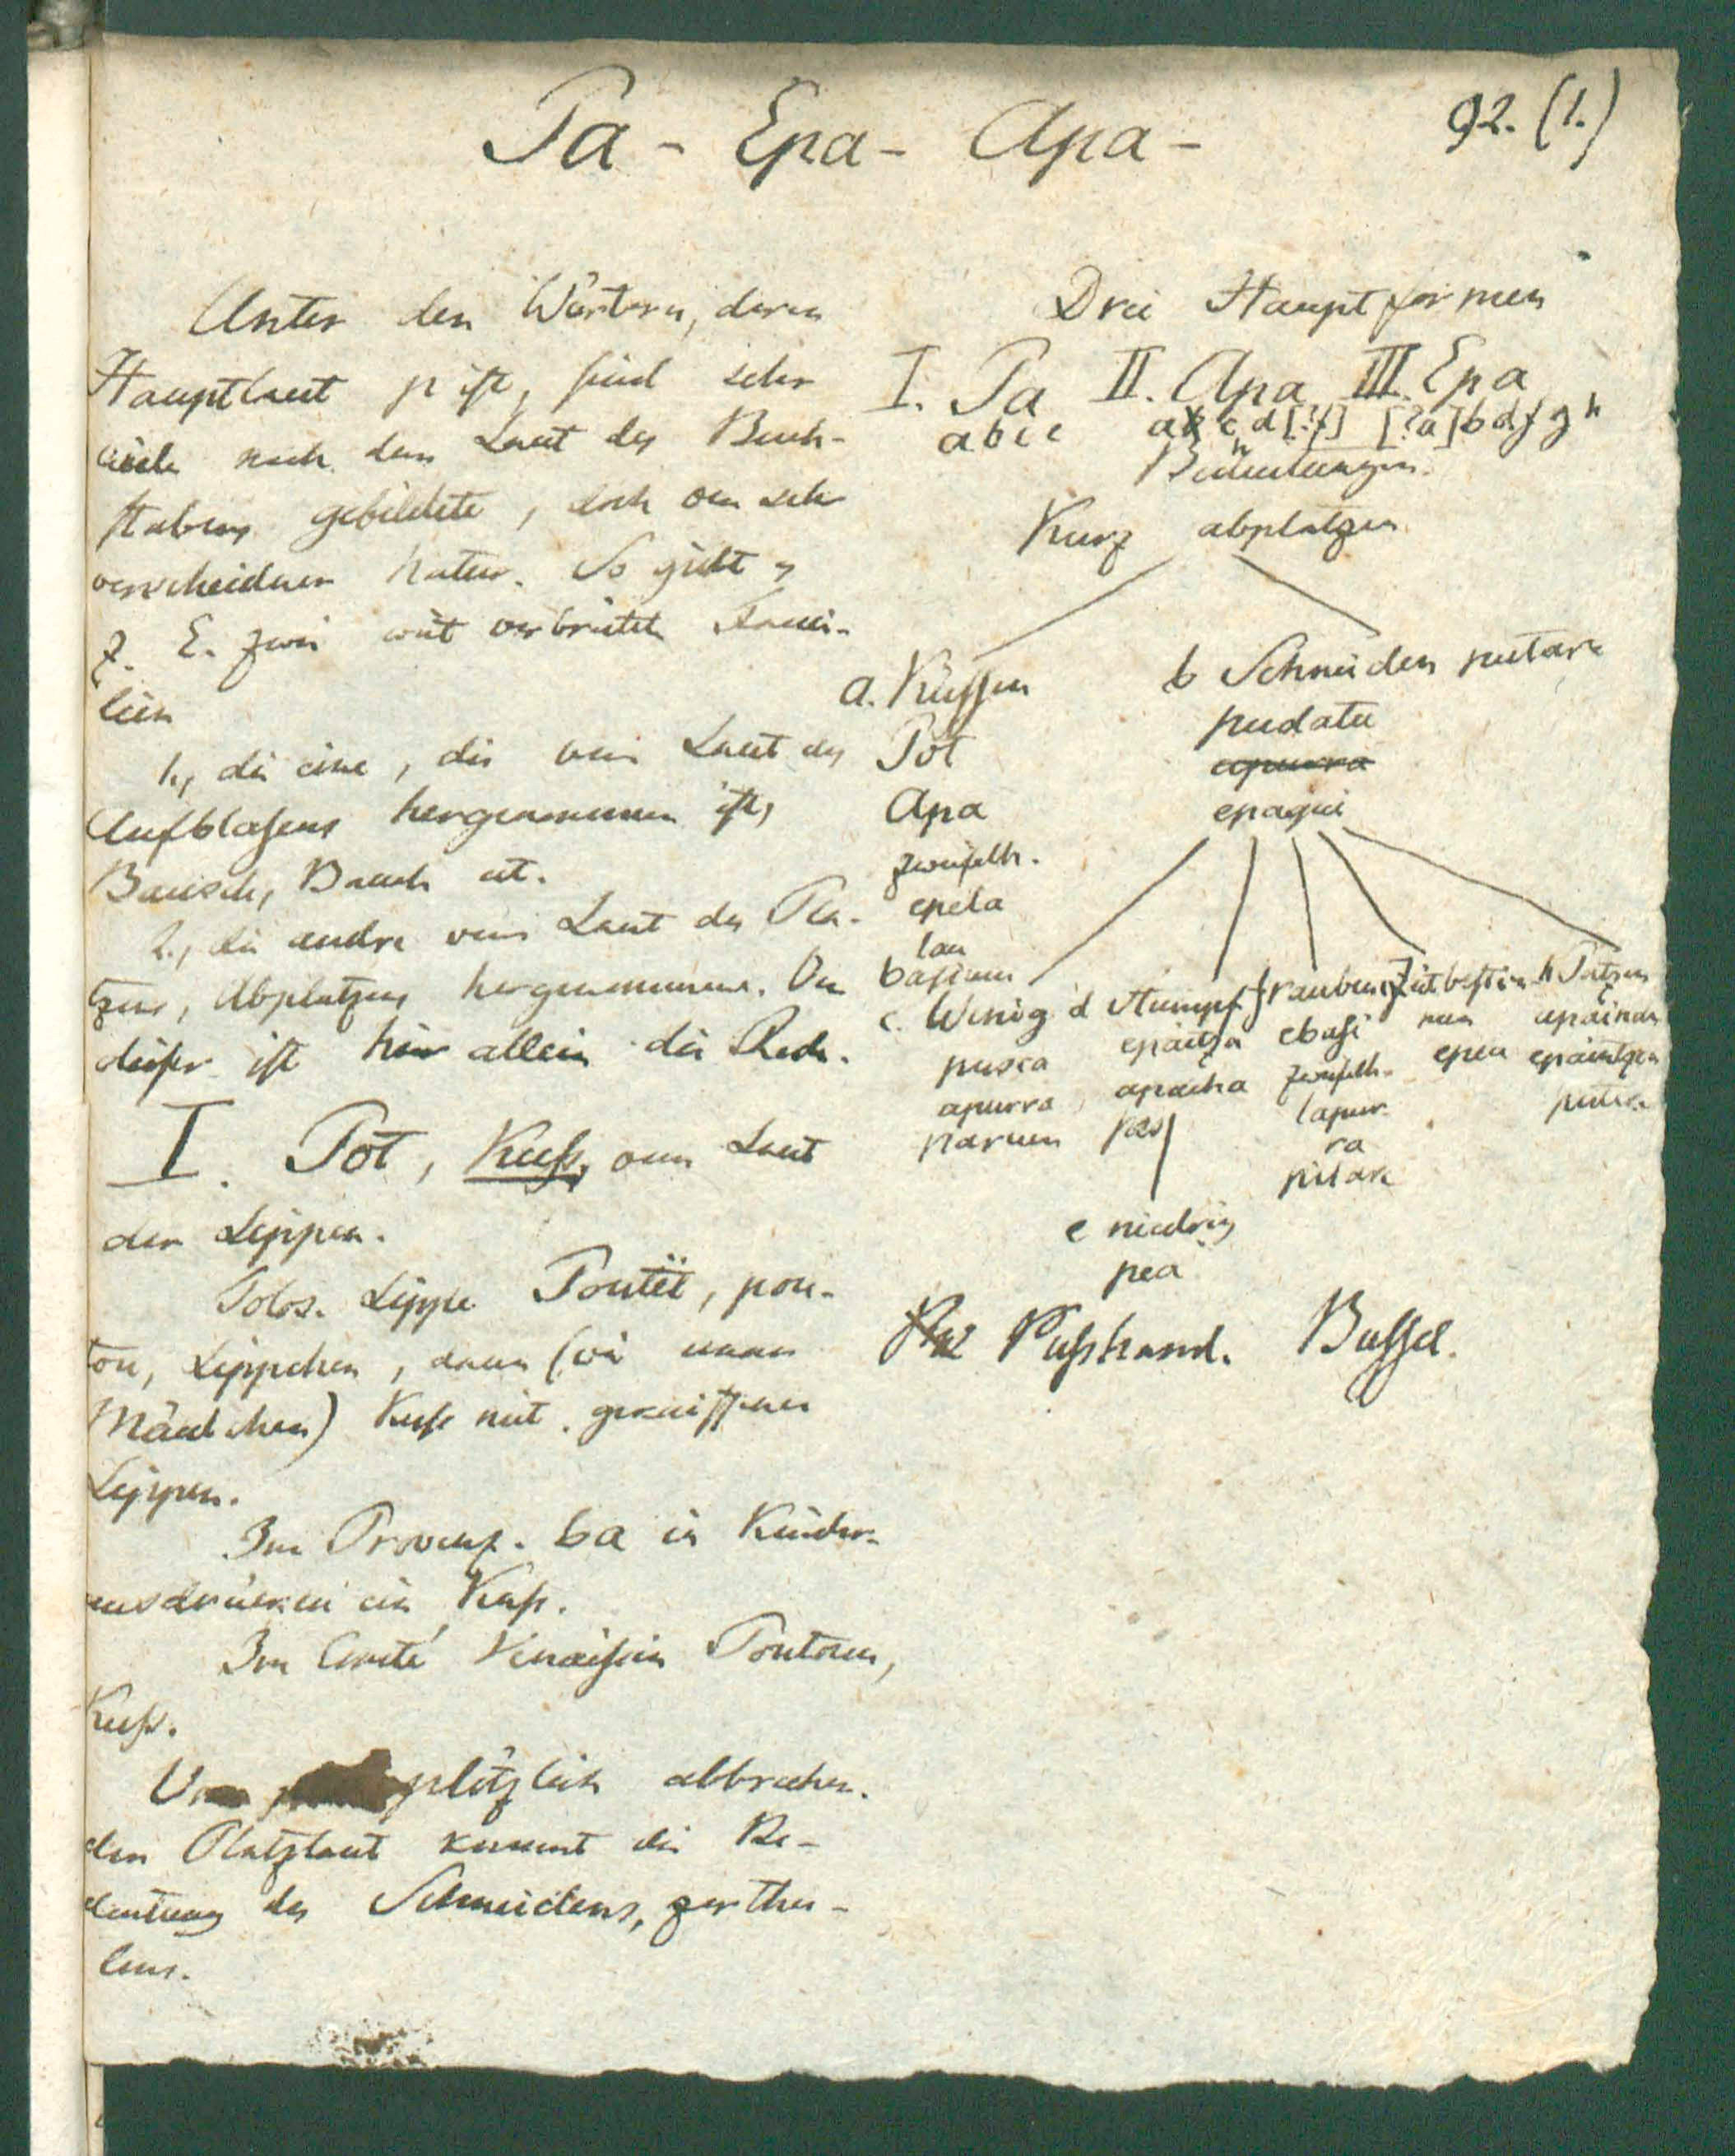 92. (1.)
Pa - Epa - Apa -
Unter den Wörtern, deren
Hauptlaut p ist, sind sehr
viele nach dem Laut des Buch-
stabens gebildete, doch von sehr
verschiedner Natur. So giebt es
z. E. zwei weit verbreitete Fami-
lien
1., die eine, die vom Laut des
Aufblasens hergenommen ist,
Bausch, Bauch etc.
2., die andre vom Laut des Pla-
tzens, Abplatzens hergenommene. Von
dieser ist hier allein die Rede.
I. Pot, Kuss, vom Laut
der Lippen.
Tolos. Lippe Poutët, pou-
tou, Lippchen, dann (wie unser
Mäulchen) Kuss mit gekniffenen
Lippen.
Im Provenz. ba in Kinder-
ausdrücken ein Kuss.
Im Comté Venaissin Poutoun,
Kuss.
Vom plötzlich abbrechen-
den Platzlaut kommt die Be-
deutung des Schneidens, zerthei-
lens.
Drei Hauptformen
I. Pa II. Apa III. Epa
a b c e a c d [?f] [?a] b d f g h
Bedeutungen.
Kurz abplatzen
a. Küssen
Pot
Apa
zweifelh.
epela
lau
basium
b Schneiden putare
pudatu
apurra
epaqui
c. Wenig
pusca
apurra
parum
d Stumpf
epaitza
apacha
e niedrig
pea
f rauben
ebasi
zweifelh.
lapur
ra
g Zeit bestim
men
epea
h
apaindu
epaintzea
Kusshand. Bussel.